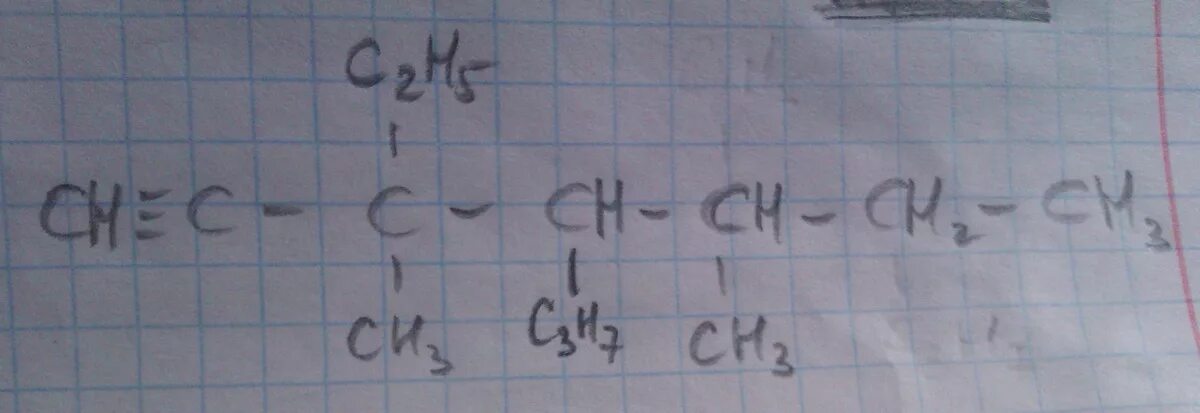 C₂H₅
CH≡C-C-CH-CH-CH₂-CH₃
CH₃ C₃H₇ CH₃